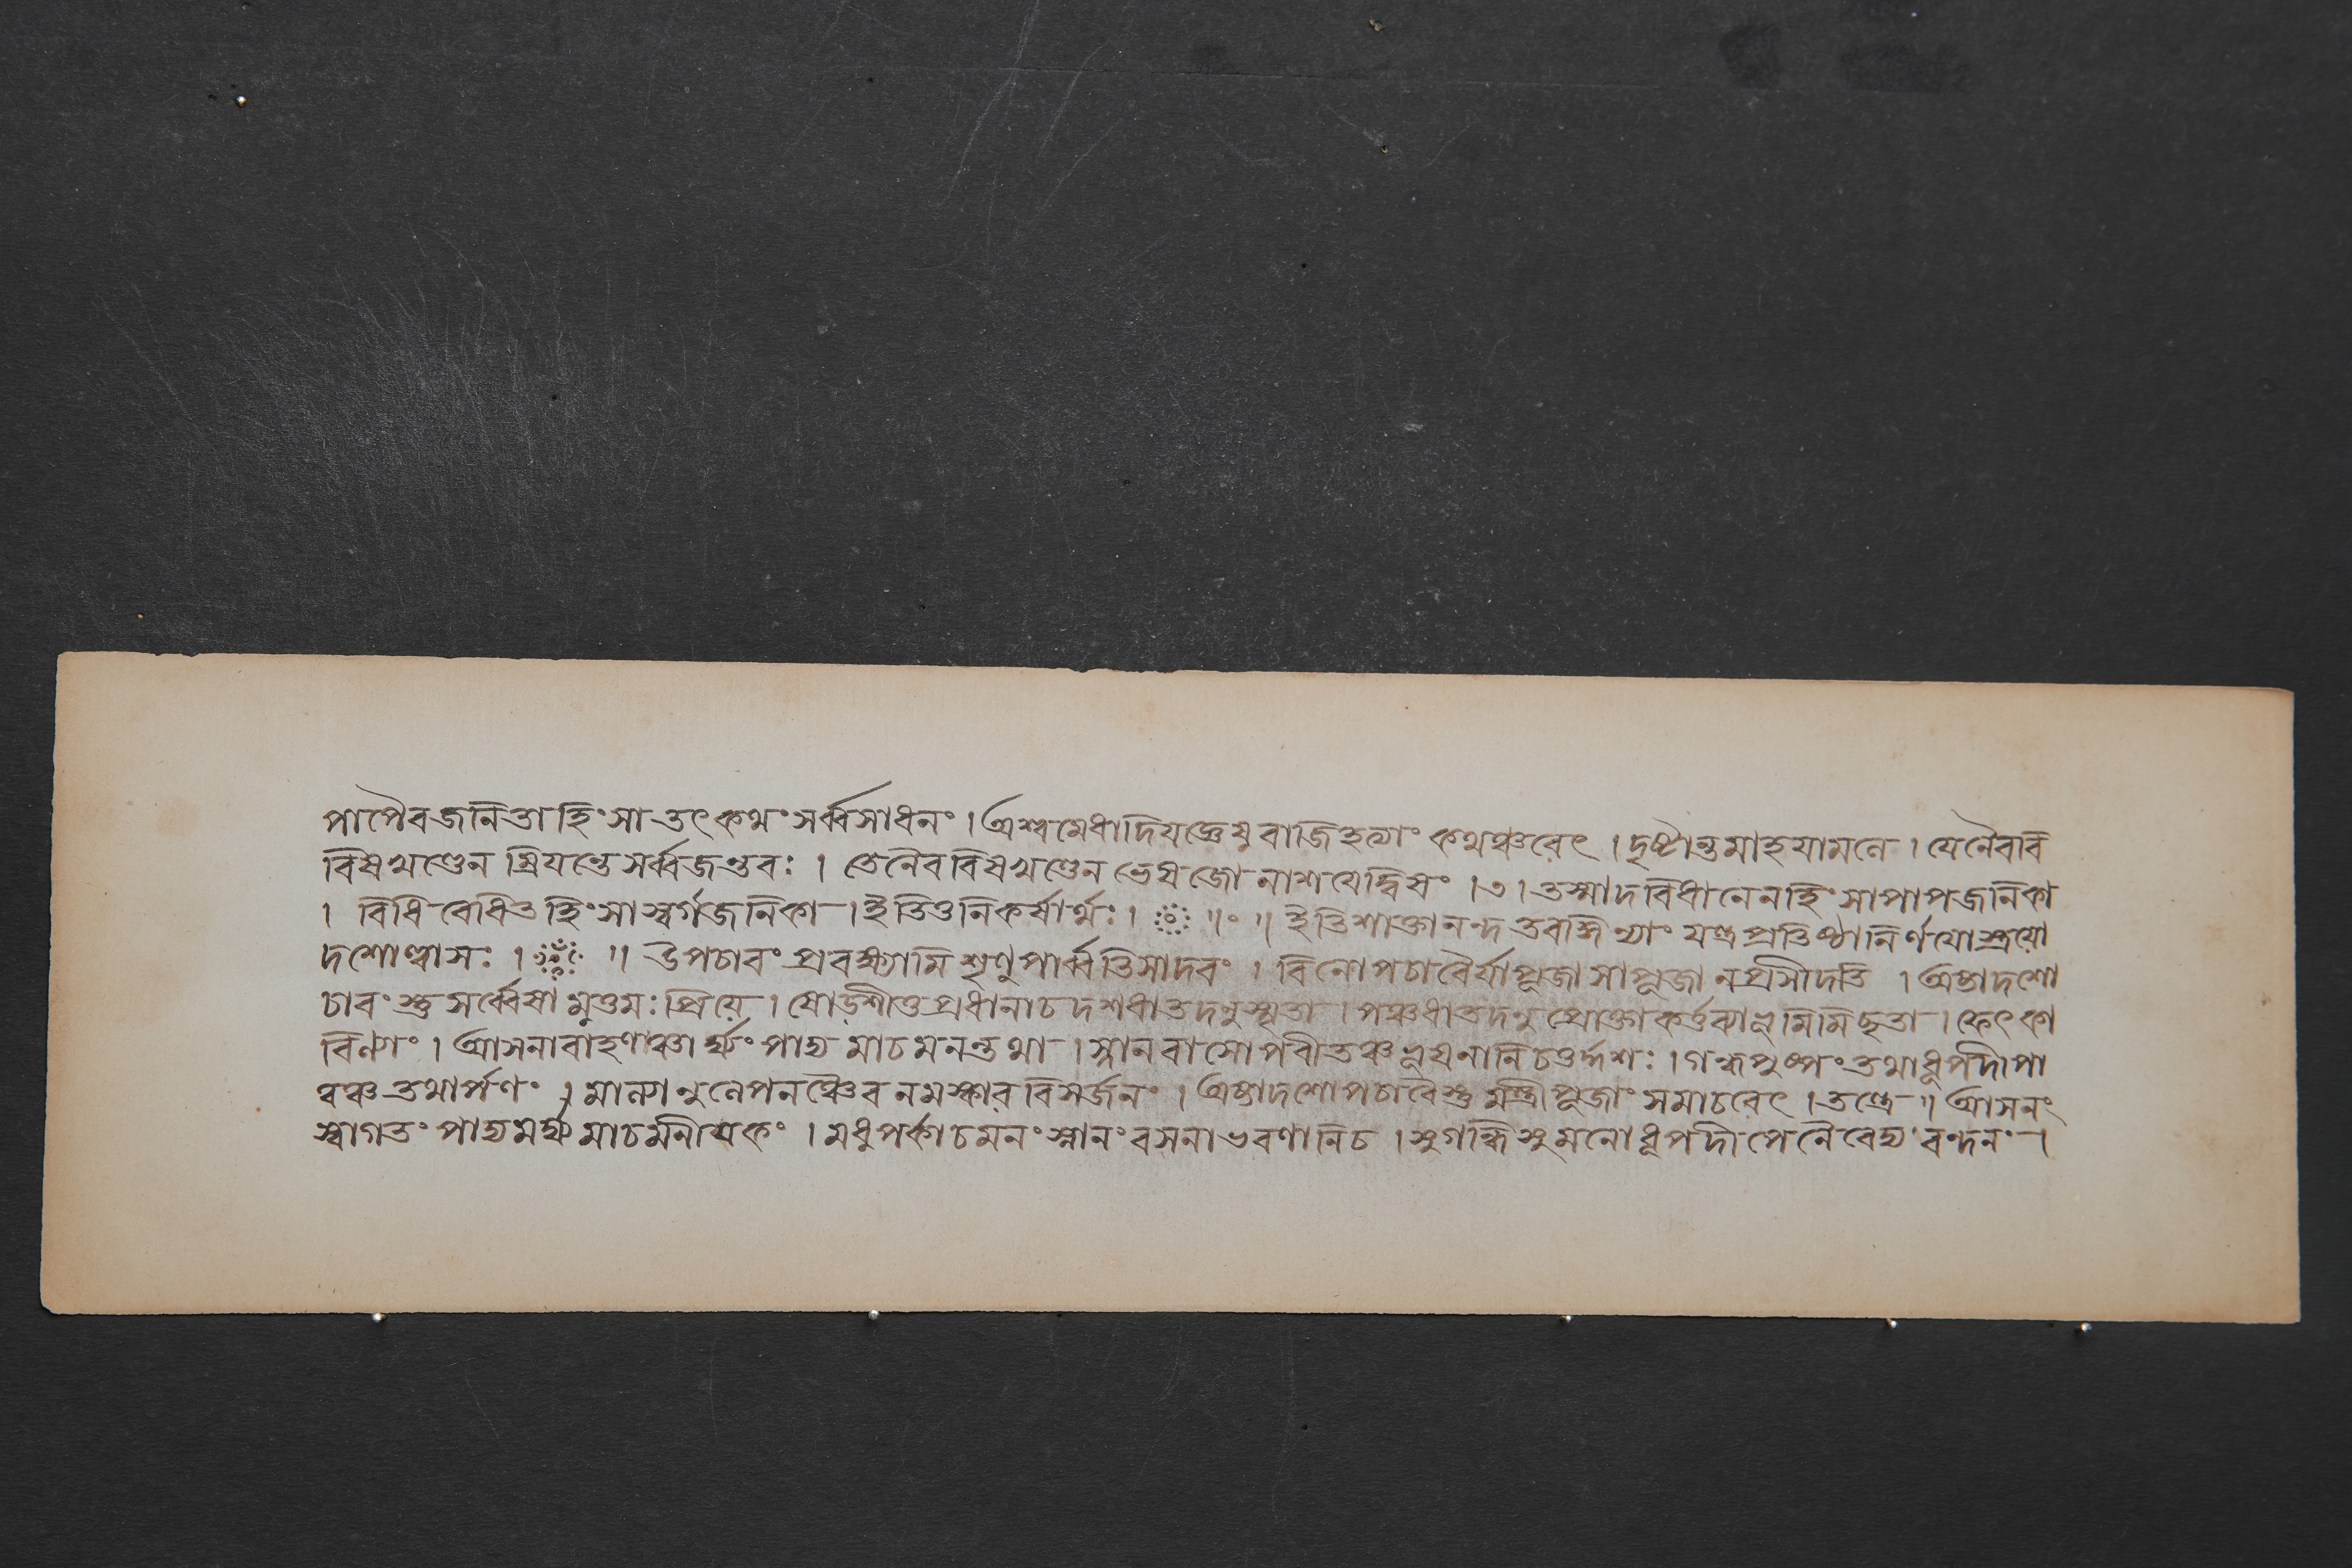 পাপৈব জনিতা হিংসা তৎ কথং সর্ব্বসাধনং । অশ্বমেধাদিযজ্ঞেষু বাজিহত্যাং কথঞ্চরেৎ । দৃষ্টান্তমাহ যামলে । যেনৈব বি
বিষখণ্ডেন ম্রিয়ন্তে সর্ব্বজন্তবঃ । তেনৈব বিষখণ্ডেন ভেষজো নাশয়েদ্বিষং । ৩ । তস্মাদবিধানেন হিংসা পাপজনিকা
। বিধিবোধিত হিংসা স্বর্গজনিকা । ইতি তু নিকর্ষার্থঃ । ॥ ॥ ইতি শাক্তানন্দতরঙ্গিণ্যাং যন্ত্রপ্রতিষ্ঠানির্ণয়ো স্ত্রয়ো
দশোল্লাসঃ । ॥ উপচারং প্রবক্ষ্যামি শৃণু পার্ব্বতি সাদরং । বিনোপচারৈর্যা পূজা সা পূজা ন প্রসীদতি । অষ্টাদশো
চারংস্তু সর্ব্বেষামুত্তমঃ প্রিয়ে । ষোড়শী তু প্রধানা চ দশধা তদনুস্মৃতা । পঞ্চধা তদনু প্রোক্তা কর্ত্তব্যা ভূমিমিচ্ছতা । ফেৎকা
রিণ্যাং । আসনাবাহণঞ্চার্ঘ্যং পাদ্যমাচমনন্তথা । স্নানবাসোপবীতঞ্চ ভূষনানি চতুর্দ্দশঃ । গন্ধপুষ্পং তথা ধূপদীপা
ন্নঞ্চ তথার্পণং । মাল্যানুলেপনঞ্চৈব নমস্কারবিসর্জনং । অষ্টাদশোপচারৈস্তু মন্ত্রী পূজাং সমাচরেৎ । তন্ত্রে ॥ আসনং
স্বাগতং পাদ্যমর্ঘ্যমাচমনীয়কং । মধুপর্কাচমনং স্নানং বসনাভরণানি চ । সুগন্ধি সুমনো ধূপদীপনৈবেদ্য বন্দনং ।